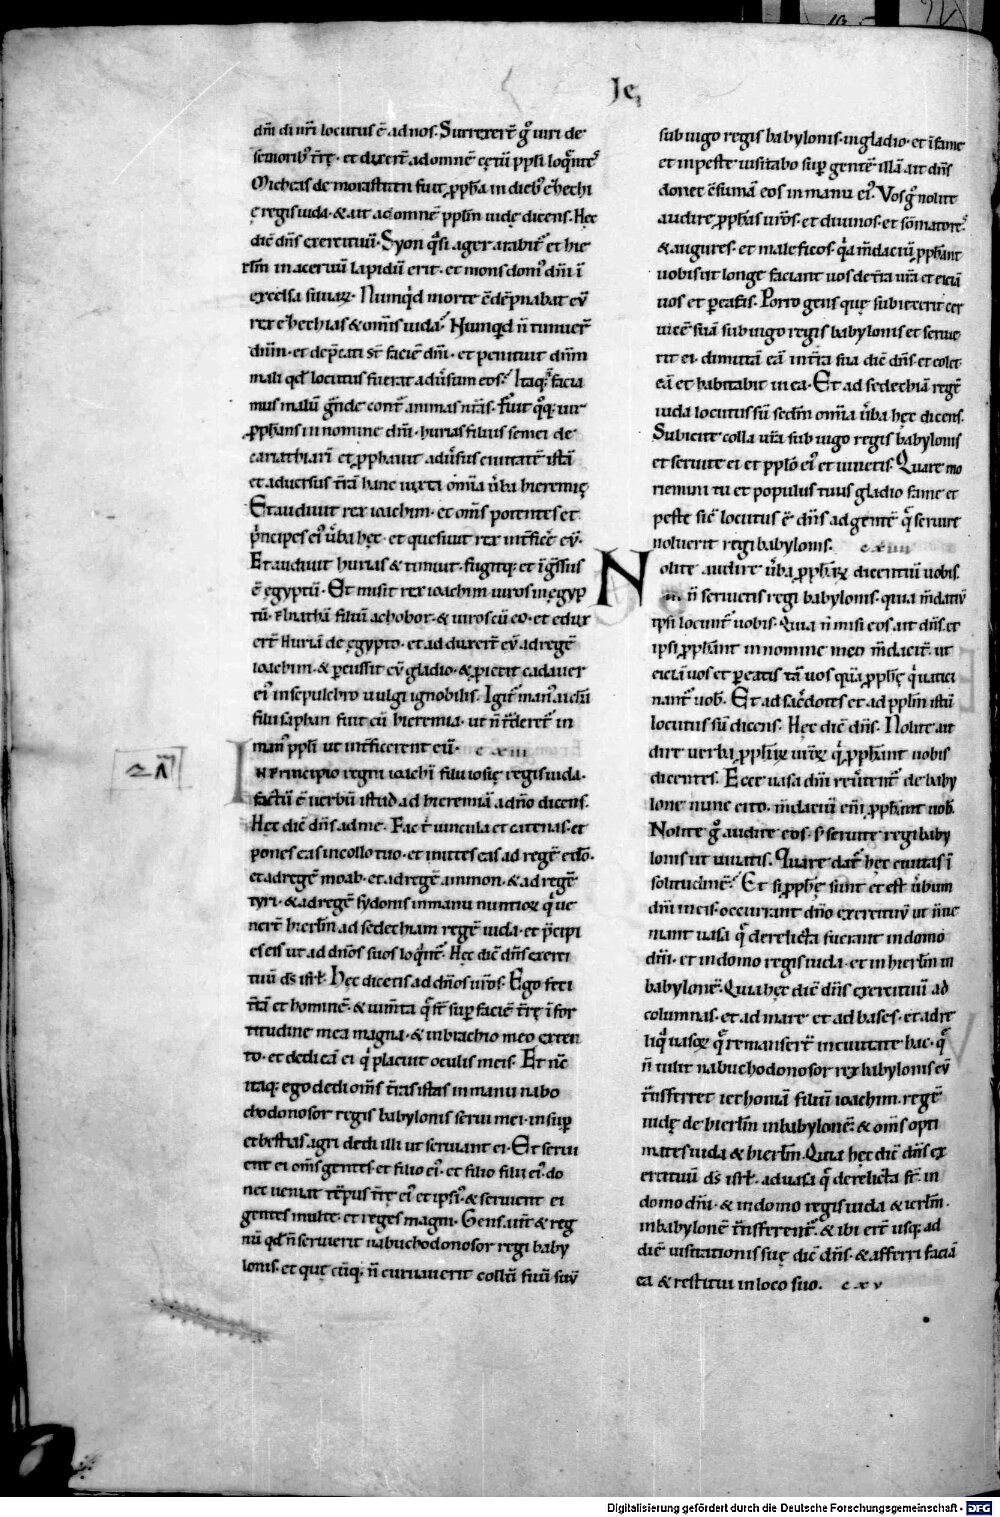 Je
dm̄i di n̄ri locutus ē ad nos. Surrexer̄t gͦ uiri de
seniorib; t̄rę. et dixer̄t ad omnē cętū pp̄li loq̄ntes
Micheas de morasthim fuit ꝓph̄a in dieb; ezechi
ę regis iuda. & ait ad omnē pp̄lm iudę dicens. Hęc
dic̄ dn̄s exercituū. Syon q̄si ager arabit̄ et hie
rl̄m in aceruū lapidū erit. et mons dom; dn̄i ī
excelsa siluaꝝ. Numqͥd morte cōdēpnabat eū
rex ezechias & om̄is iuda? Numqͥd n̄ timuer̄
dn̄m. et dep̄cati st̄ faciē dn̄i. et penituit dn̄m
mali qd̄ locutus fuerat aduͥsum eos? Itaq; facia
mus malū gͣnde cont̄ animas nr̄as. Fuit q̊q; uir
ꝓphans in nomine dn̄i. hurias filius semei de
cariathiarī et ꝓphauit aduͥsus ciuitatē istā
et aduersus t̄rā hanc iuxta omīa ūba hieremię
Et audiuit rex ioachim. et om̄s potentes et
pͥncipes ei; ūba hęc. et quesiuit rex int̄ficē eū.
Et audiuit hurias & timuit. fugitq; et īgͤssus
ē ęgyptū. Et misit rex ioachim uiros in ęgyp
tū. elnathā filiū achobor. & uiros cū eo. et edux
er̄t huriā de ęgypto. et adduxer̄t eū ad regē
ioachim. & ꝑcussit eū gladio. & ꝓiecit cadauer
ei; in sepulchro uulgi ignobilis. Igit̄ man; aichā
filii saphan fuit cū hieremia. ut n̄ tͣderet̄ in
man; pp̄li ut int̄ficerent eū. cxiii
IN principio regni ioachī filii iosię regis iuda.
factū ē uerbū istud ad hieremiā a dn̄o dicens.
Hęc dic̄ dn̄s ad me. Fac tͥ uincula et catenas. et
pones eas in collo tuo. et mittes eas ad regē edō.
et ad regē moab. et ad regē ammon. & ad regē
tyri. & ad regē sydonis in manu nuntioꝝ qͥ ue
ner̄t hierl̄m ad sedechiam regē iuda. et p̄cipi
es eis ut ad dn̄os suos loqͣnt̄. Hęc dic̄ dn̄s exerci
tuū ds̄ isr̄l. Hęc dicetis ad dn̄os ur̄os. Ego feci
t̄rā et hominē. & iumīta q̄ st̄ suꝑ faciē t̄rę ī for
titudine mea magna. & in brachio meo exten
to. et dedi eā ei qͥ placuit oculis meis. Et nc̄
itaq; ego dedi om̄s t̄ras istas in manu nabo
chodonosor regis babylonis serui mei. insuꝑ
et bestias agri dedi illi ut seruiant ei. Et serui
ent ei om̄s gentes. et filio ei;. et filio filii ei;. do
nec ueniat tēpus t̄rę ei; et ipsi;. & seruient ei
gentes multe. et reges magni. Gens aūt & reg
nū qd̄ n̄ seruierit nabuchodonosor regi baby
lonis. et quęcūq; n̄ curuauerit collū suū sub
sub iugo regis babylonis. in gladio. et ī fame
et in peste uisitabo suꝑ gentē illā ait dn̄s
donec cōsumā eos in manu ei;. Vos gͦ nolite
audire ꝓphas ur̄os. et diuinos. et sōmiatores
& augures. et maleficos. qͥa m̄daciū ꝓphant
uobis ut longe faciant uos de t̄ra ur̄a et eiciā
uos et ꝑeatis. Porro gens quę subiecerit cer
uicē suā sub iugo regis babylonis et serue
rit ei. dimittā eā in t̄ra sua dic̄ dn̄s. et colet
eā et habitabit in ea. Et ad sedechiā regē
iuda locutus sū sedm̄ omīa ūba hęc dicens.
Subicite colla ur̄a sub iugo regis babylonis
et seruite ei et pplō ei; et uiuetis. Quare mo
riemini tu et populus tuus gladio fame et
peste sic̄ locutus ē dn̄s ad gentē q̄ seruire
noluerit regi babylonis. cxiiii
Nolite audire ūba ꝓph̄aꝝ dicentiū uobis.
n̄ seruietis regi babylonis. quia m̄datiū
ipsi locunt̄ uobis. Quia n̄ misi eos ait dn̄s. et
ipsi ꝓph̄ant in nomine meo m̄dacit̄. ut
eiciā uos et ꝑeatis tā uos quā ꝓph̄ę qͥ uatici
nant̄ uob̄. Et ad sac̄dotes et ad pplm̄ istū
locutus sū dicens. Hęc dic̄ dn̄s. Nolite au
dire uerba ꝓph̄aꝝ ur̄oꝝ qͥ ꝓph̄ant uobis
dicentes. Ecce uasa dn̄i reūtent̄ de baby
lone nunc cito. m̄daciū enī ꝓph̄ant uob̄.
Nolite gͦ audire eos. s; seruite regi baby
lonis ut uiuatis. Quare dat̄ hęc ciuitas ī
solitudinē? Et si ꝓph̄ę sunt et est ūbum
dn̄i in eis. occurrant dn̄o exercituū ut n̄ ue
niant uasa q̄ derelicta fuerant in domo
dn̄i. et in domo regis iuda. et in hierl̄m in
babylonē. Quia hęc dic̄ dn̄s exercituū ad
columnas. et ad mare et ad bases. et ad re
liqͣ uasoꝝ q̄ remanser̄t in ciuitate hac. q̄
n̄ tulit nabuchodonosor rex babylonis cū
tͣnsferret iechoniā filiū ioachim. regē
iudę de hierl̄m in babylonē. & om̄s opti
mates iuda & hierl̄m. Quia hęc dic̄ dn̄s ex
ercituū ds̄ isr̄l. ad uasa q̄ derelicta st̄ in
domo dn̄i. & in domo regis iuda & ierl̄m.
in babylonē tͣnsferent̄. & ibi er̄t usq; ad
diē uisitationis suę dic̄ dn̄s. & afferri faciā
ea & restitui in loco suo. cxv
Digitalisierung gefördert durch die Deutsche Forschungsgemeinschaft - DFG